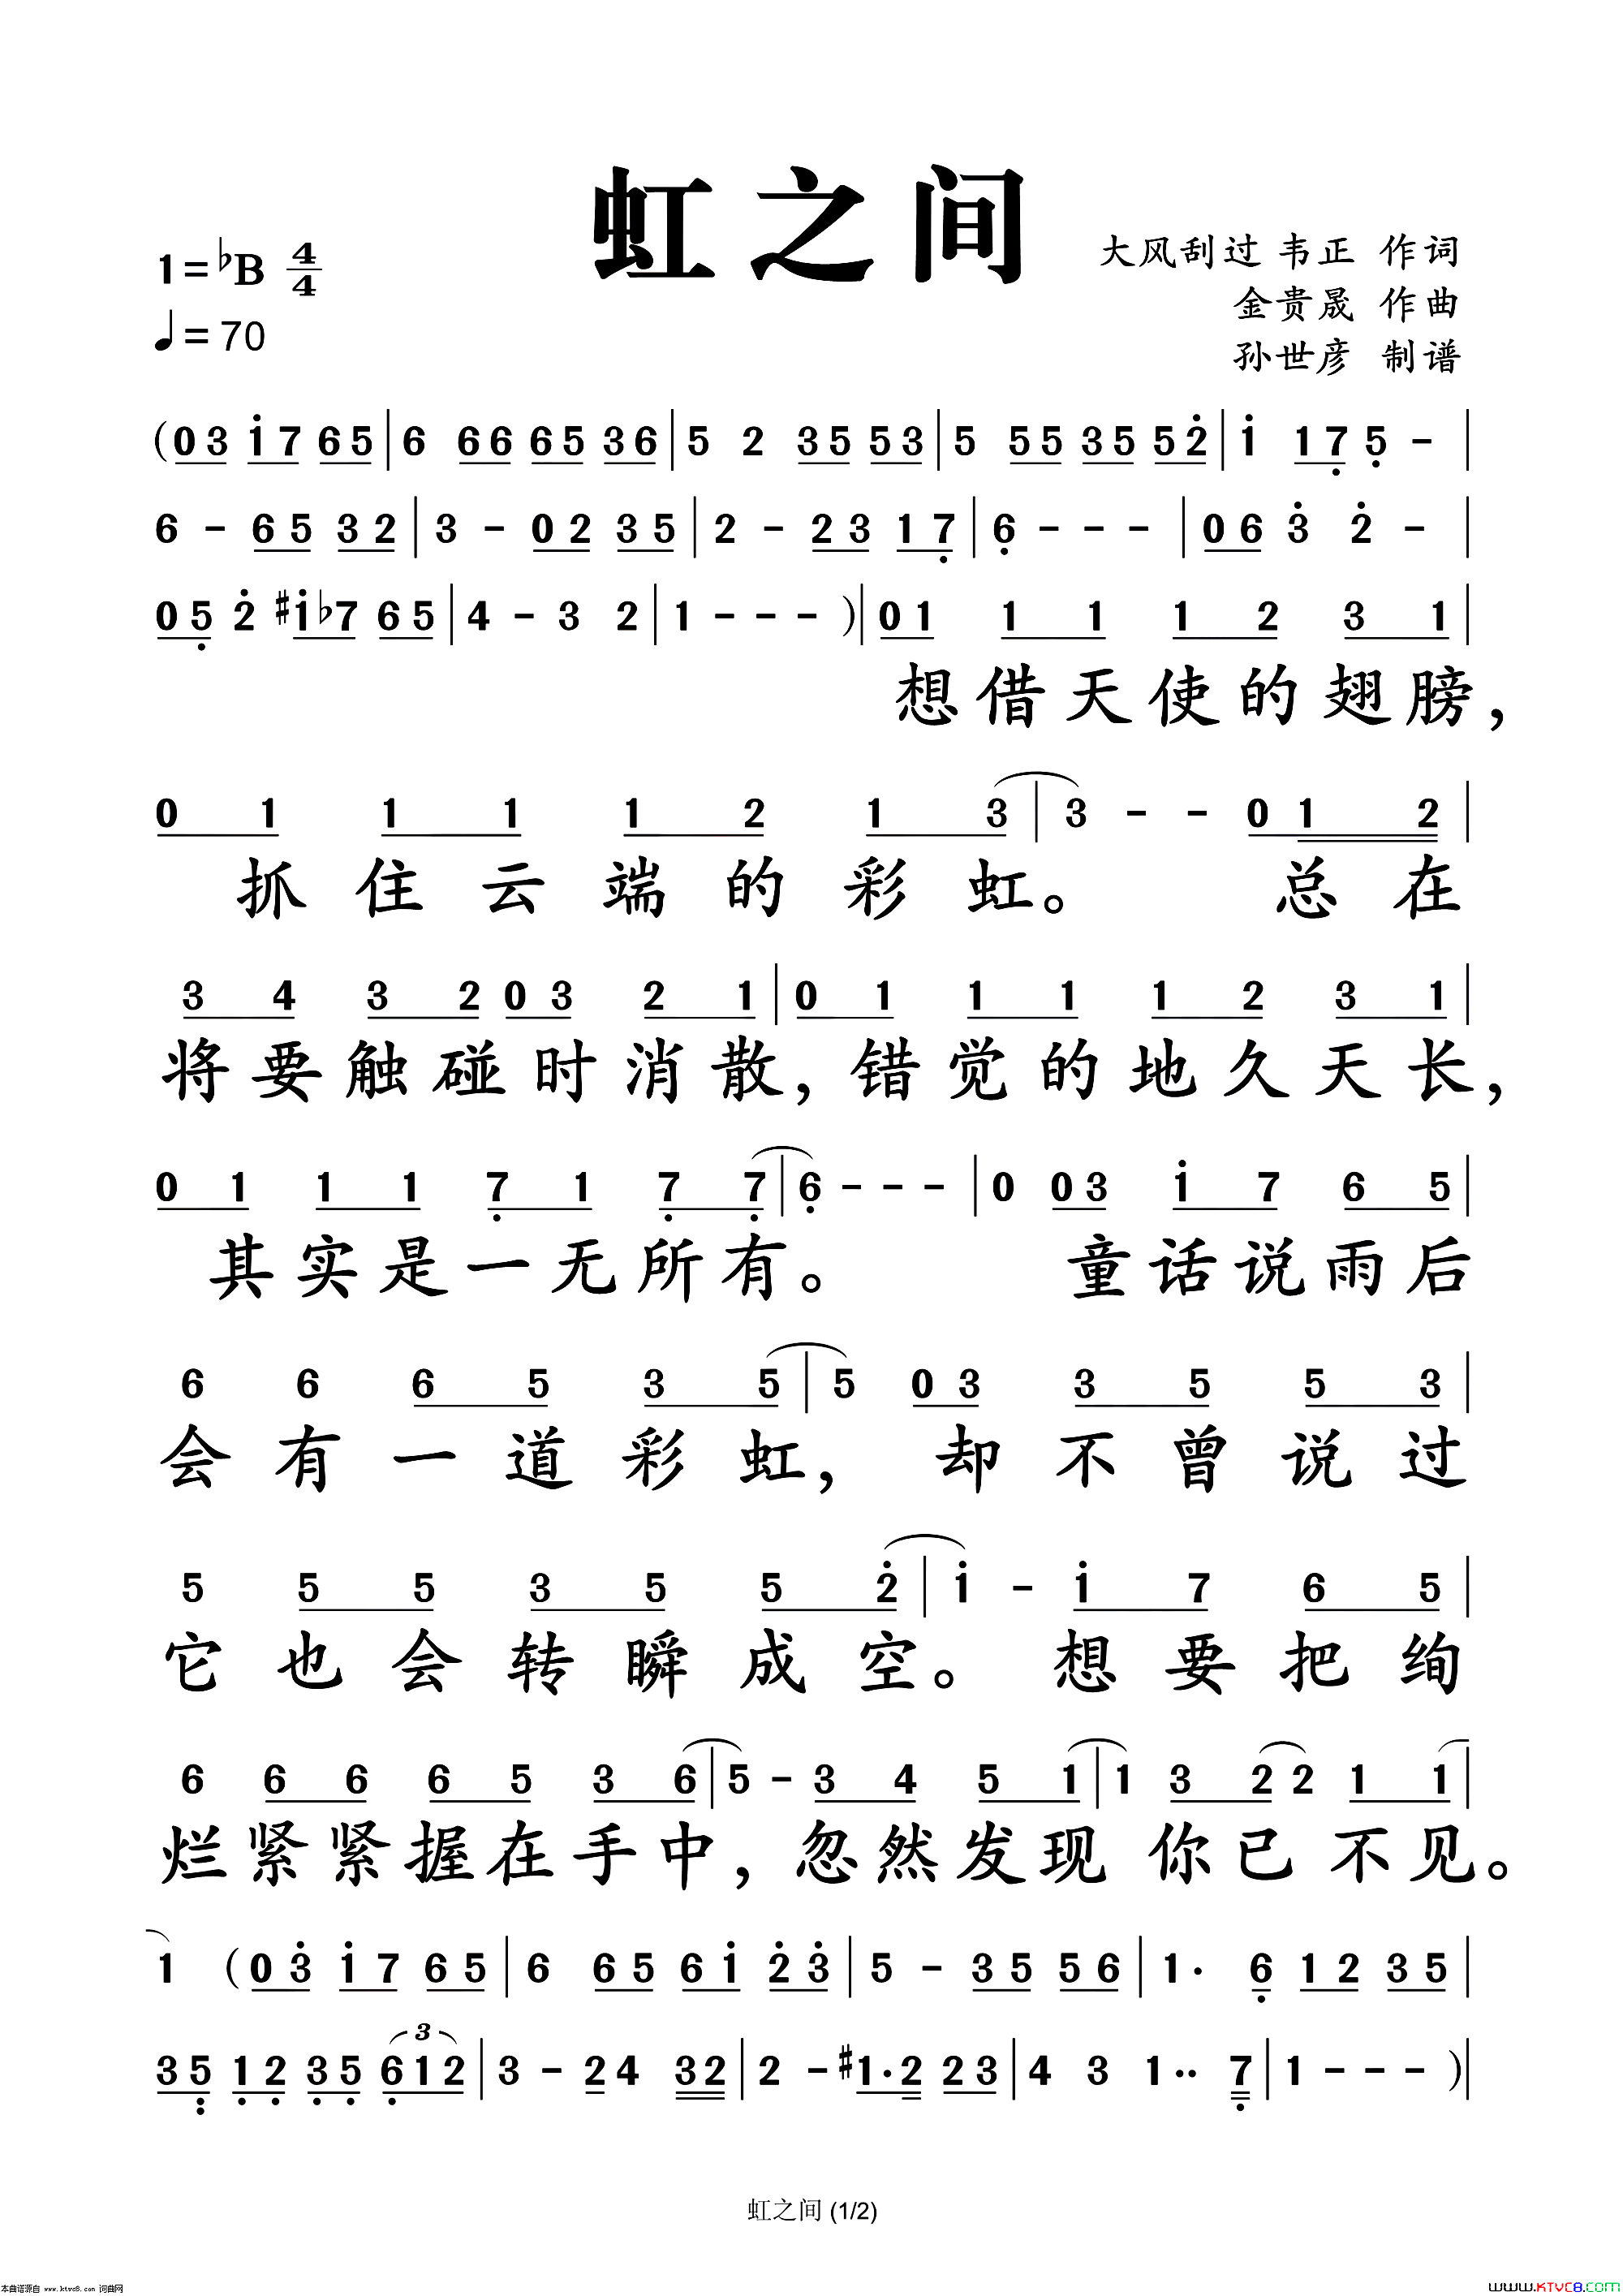 虹之间
1=♭B 4/4
♩=70
大风刮过 韦正 作词
金贵晟 作曲
孙世彦 制谱
(03 i̇7 65|6 66 65 36|5 2 35 53|5 55 35 52̇|i̇ 17̣ 5̣ -|
6 - 65 32|3 - 02 35|2 - 23 17̣|6̣ - - -|06 3̇ 2̇ -|
05̣ 2̇ #i̇♭7 65|4 - 3 2|1 - - - )|01 11 12 31|
想借天使的翅膀,
01 11 12 13|3 - - 012|
抓住云端的彩虹。 总在
34 32 03 21|01 11 12 31|
将要触碰时消散,错觉的地久天长,
01 11 7̣1 7̣7̣|6̣ - - -|0 03 i̇7 65|
其实是一无所有。 童话说雨后
6 6 65 35|5 03 35 53|
会有一道彩虹, 却不曾说过
5 55 35 52̇|i̇ - i̇7 65|
它也会转瞬成空。 想要把绚
6 66 65 36|5 - 34 51|1 32 2 11|
烂紧紧握在手中,忽然发现 你已不见。
1 (03̇ i̇7 65|6 65 6i̇ 2̇3̇|5 - 35 56|1· 6̣ 12 35|
35̣̣ 1̣2̣ 3̣5̣ 3 6̣12|3 - 24 32|2 - #1·2 23|4 3 1·· 7̣|1 - - - )|
虹之间 (1/2)
本曲谱源自 www.ktvc8.com 词曲网
www.KTVC8.COM